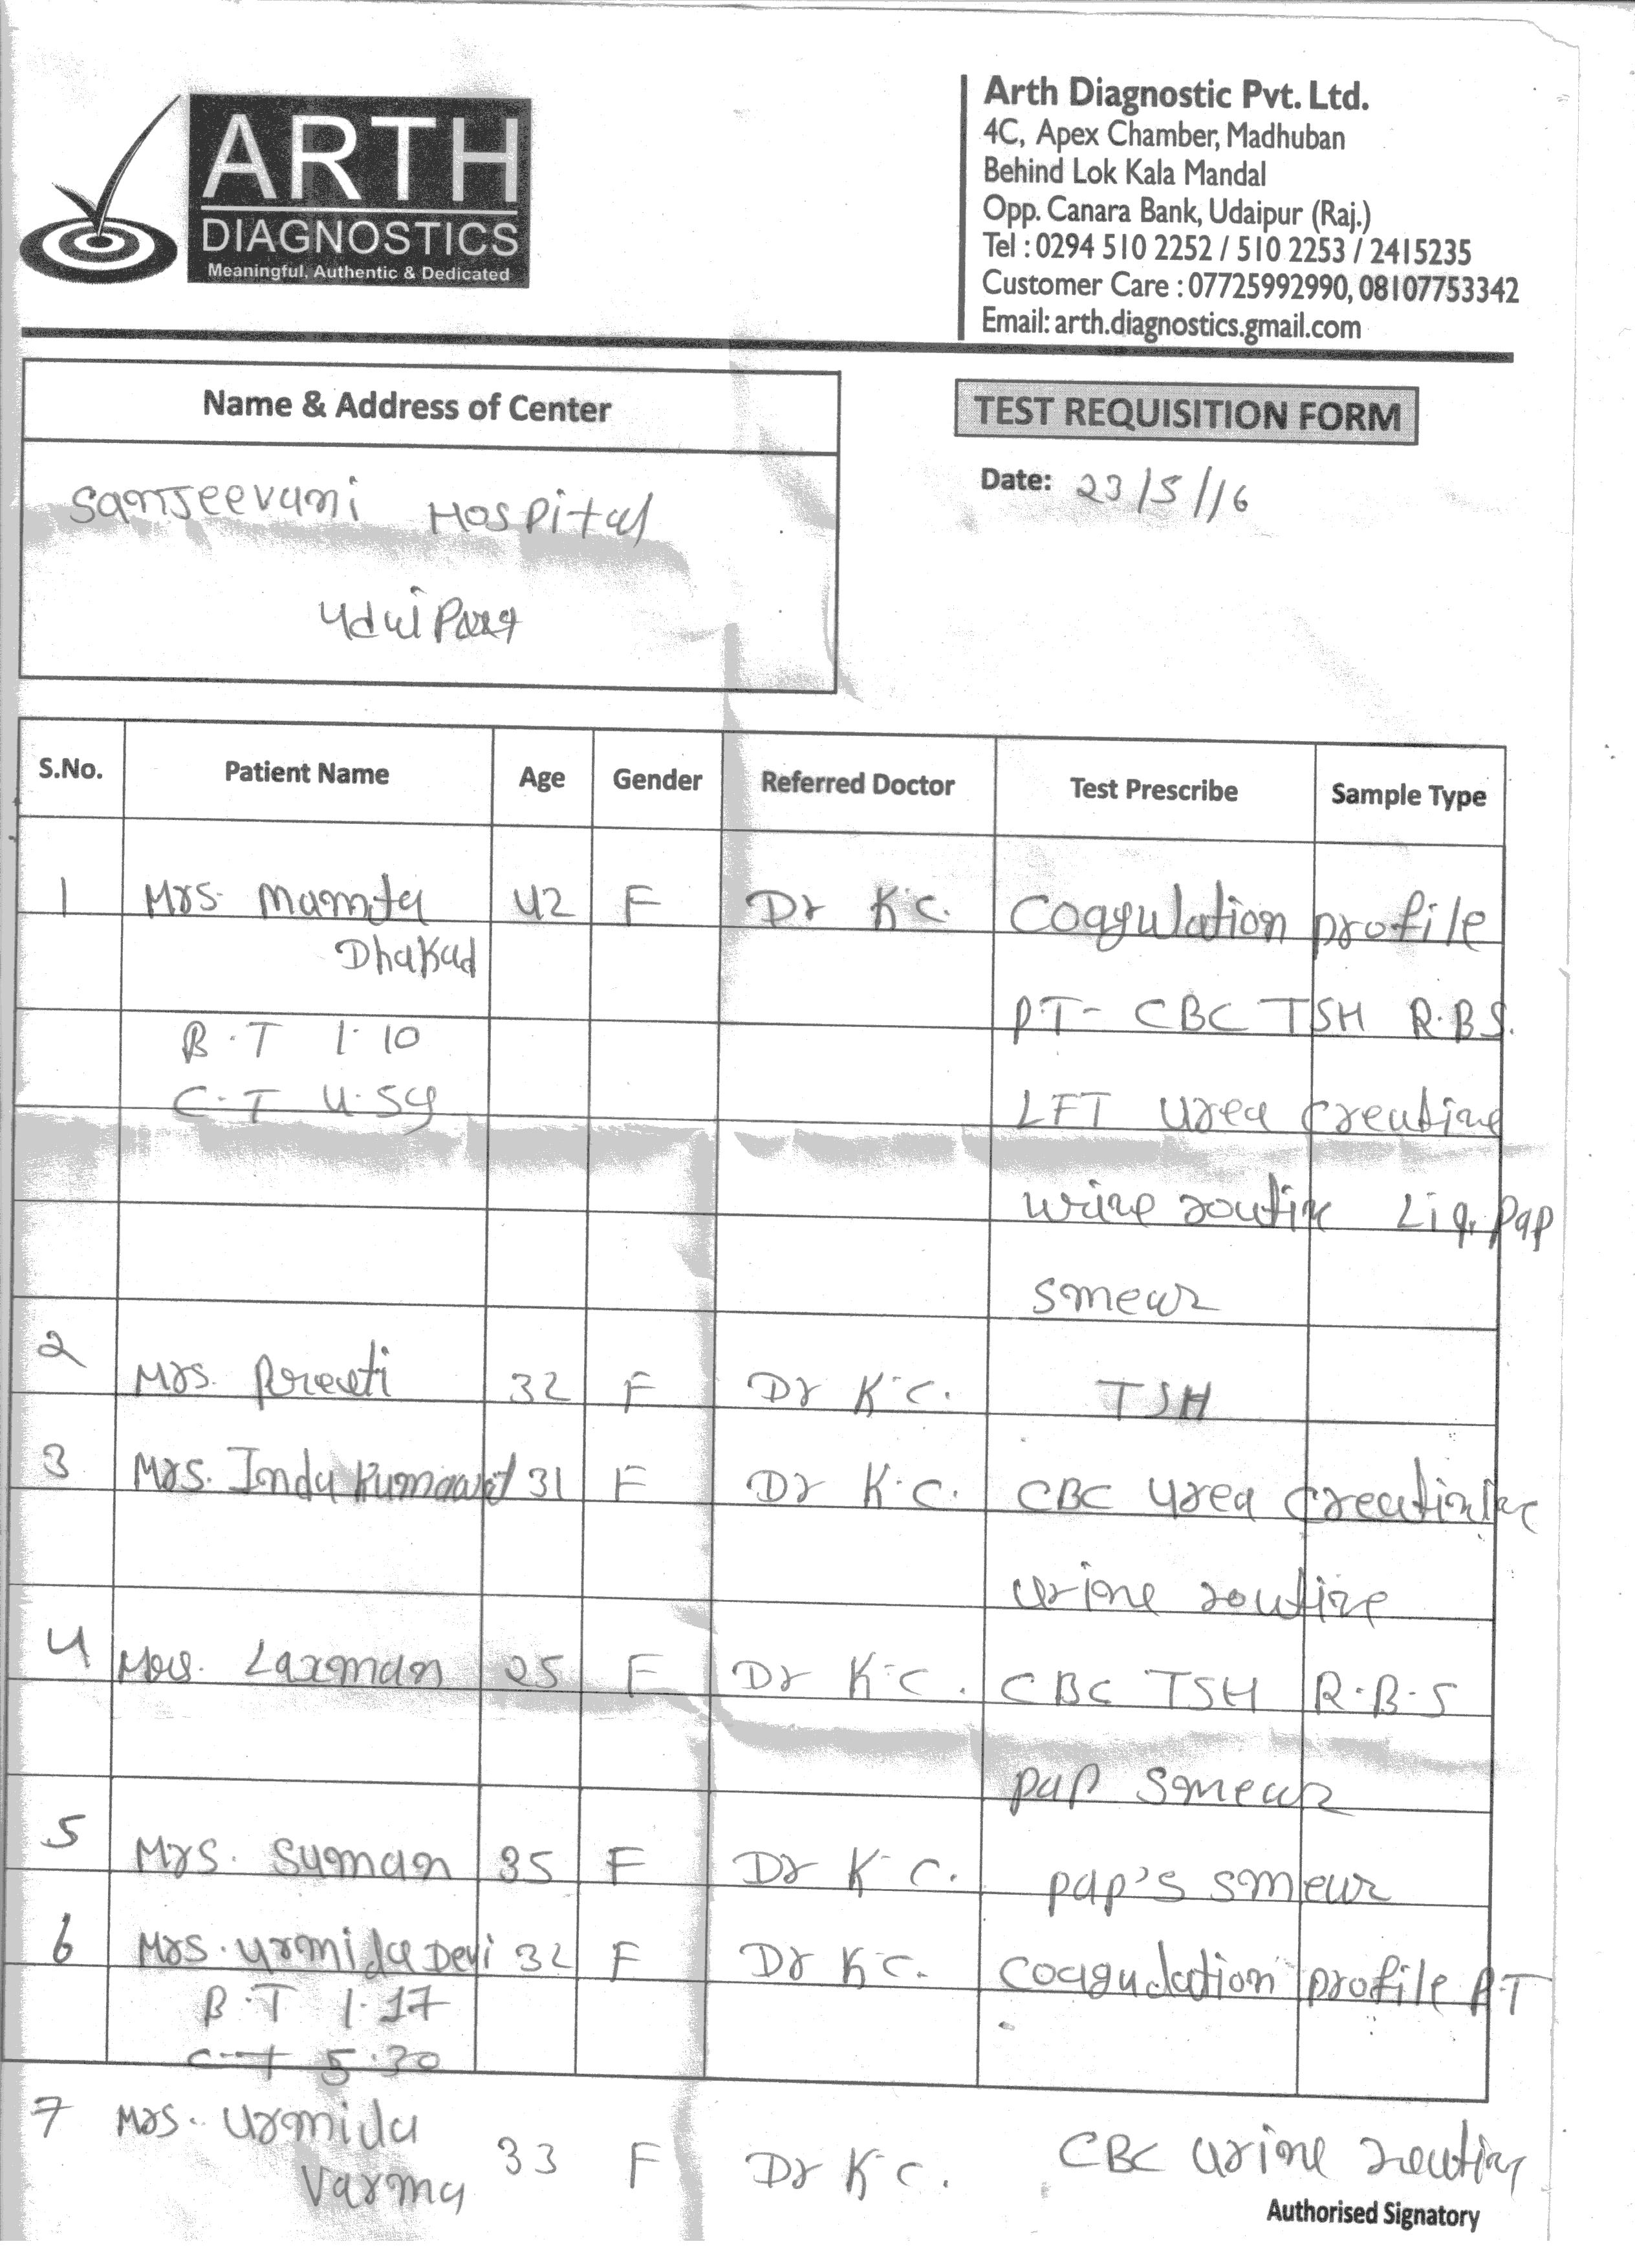 ARTH
DIAGNOSTICS
Meaningful, Authentic & Dedicated
Arth Diagnostic Pvt. Ltd.
4C, Apex Chamber, Madhuban
Behind Lok Kala Mandal
Opp. Canara Bank, Udaipur (Raj.)
Tel : 0294 510 2252 / 510 2253 / 2415235
Customer Care : 07725992990, 08107753342
Email: arth.diagnostics.gmail.com
Name & Address of Center
TEST REQUISITION FORM
Sanjeevani Hospital
Date: 23/5/16
S.No. Patient Name Age Gender Referred Doctor Test Prescribe Sample Type
1 Mrs. Mamta 42 F Dr K.C. Coagulation profile
Dhakad
PT- CBC TSH R.B.S.
B.T 1.10
C.T 4.59 LFT urea
urine Liq. pap
smear
2 Mrs. Preeti 32 F Dr K.C. TSH
3 Mrs. Indu 31 F Dr K.C. CBC urea creatinine
urine routine
4 Mrs. Laxman 25 F Dr K.C. CBC TSH R.B.S
pap smear
5 Mrs. Suman 35 F Dr K.C. pap's smear
6 Mrs. Urmila Devi 32 F Dr K.C. Coagulation profile P.T
B.T 1.17
C.T 5.30
7 Mrs. Urmila 33 F Dr K.C. CBC urine routine
Varma
Authorised Signatory